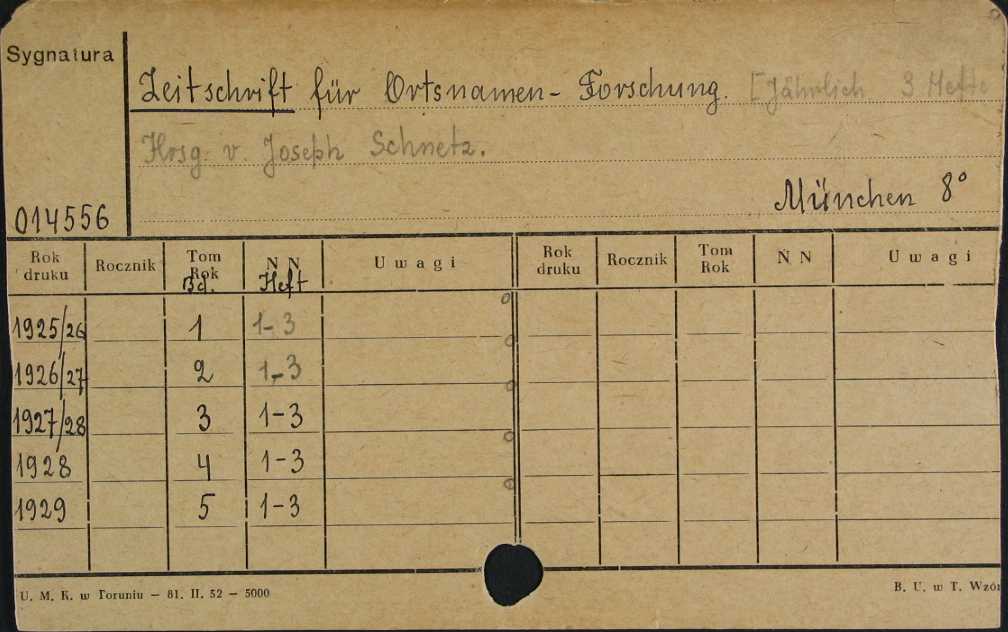 Sygnatura
Zeitschrift für Ortsnamen-Forschung. [Jährlich 3 Hefte
Hrsg. v. Joseph Schnetz.
München 8°
014556
Rok druku Rocznik Tom Rok Bd. N N Heft Uwagi Rok druku Rocznik Tom Rok N N Uwagi
1925/26 1 1-3
1926/27 2 1-3
1927/28 3 1-3
1928 4 1-3
1929 5 1-3
U. M. K. w Toruniu — 81. II. 52 — 5000
B. U. w T. Wzór